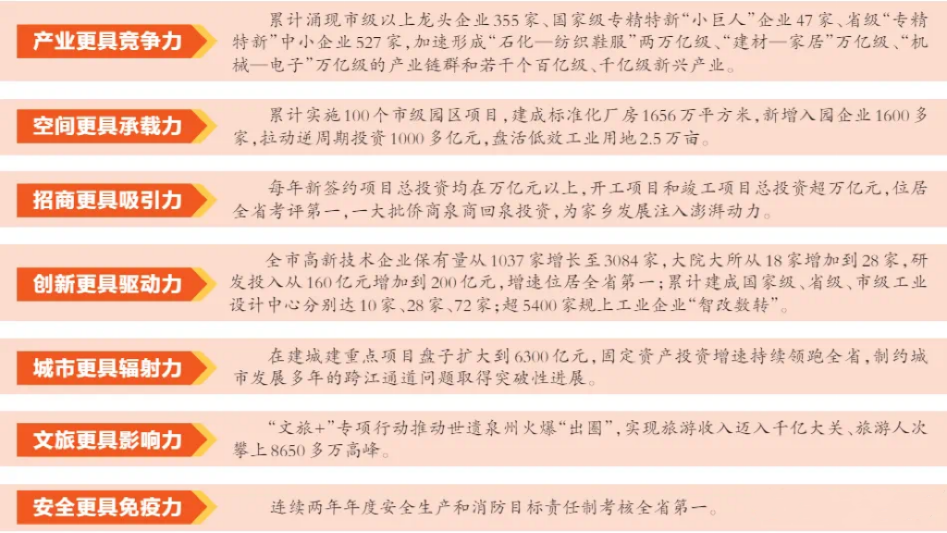 产业更具竞争力
累计涌现市级以上龙头企业355家、国家级专精特新“小巨人”企业47家、省级“专精
特新”中小企业527家，加速形成“石化—纺织鞋服”两万亿级、“建材—家居”万亿级、“机
械—电子”万亿级的产业链群和若干个百亿级、千亿级新兴产业。
空间更具承载力
累计实施100个市级园区项目，建成标准化厂房1656万平方米，新增入园企业1600多
家，拉动逆周期投资1000多亿元，盘活低效工业用地2.5万亩。
招商更具吸引力
每年新签约项目总投资均在万亿元以上，开工项目和竣工项目总投资超万亿元，位居
全省考评第一，一大批侨商泉商回泉投资，为家乡发展注入澎湃动力。
创新更具驱动力
全市高新技术企业保有量从1037家增长至3084家，大院大所从18家增加到28家，研
发投入从160亿元增加到200亿元，增速位居全省第一；累计建成国家级、省级、市级工业
设计中心分别达10家、28家、72家；超5400家规上工业企业“智改数转”。
城市更具辐射力
在建城建重点项目盘子扩大到6300亿元，固定资产投资增速持续领跑全省，制约城
市发展多年的跨江通道问题取得突破性进展。
文旅更具影响力
“文旅+”专项行动推动世遗泉州火爆“出圈”，实现旅游收入迈入千亿大关、旅游人次
攀上8650多万高峰。
安全更具免疫力
连续两年年度安全生产和消防目标责任制考核全省第一。